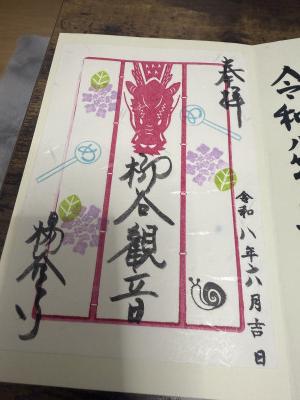 奉拝
令和八年六月吉日
柳谷観音
楊谷寺
令和八年